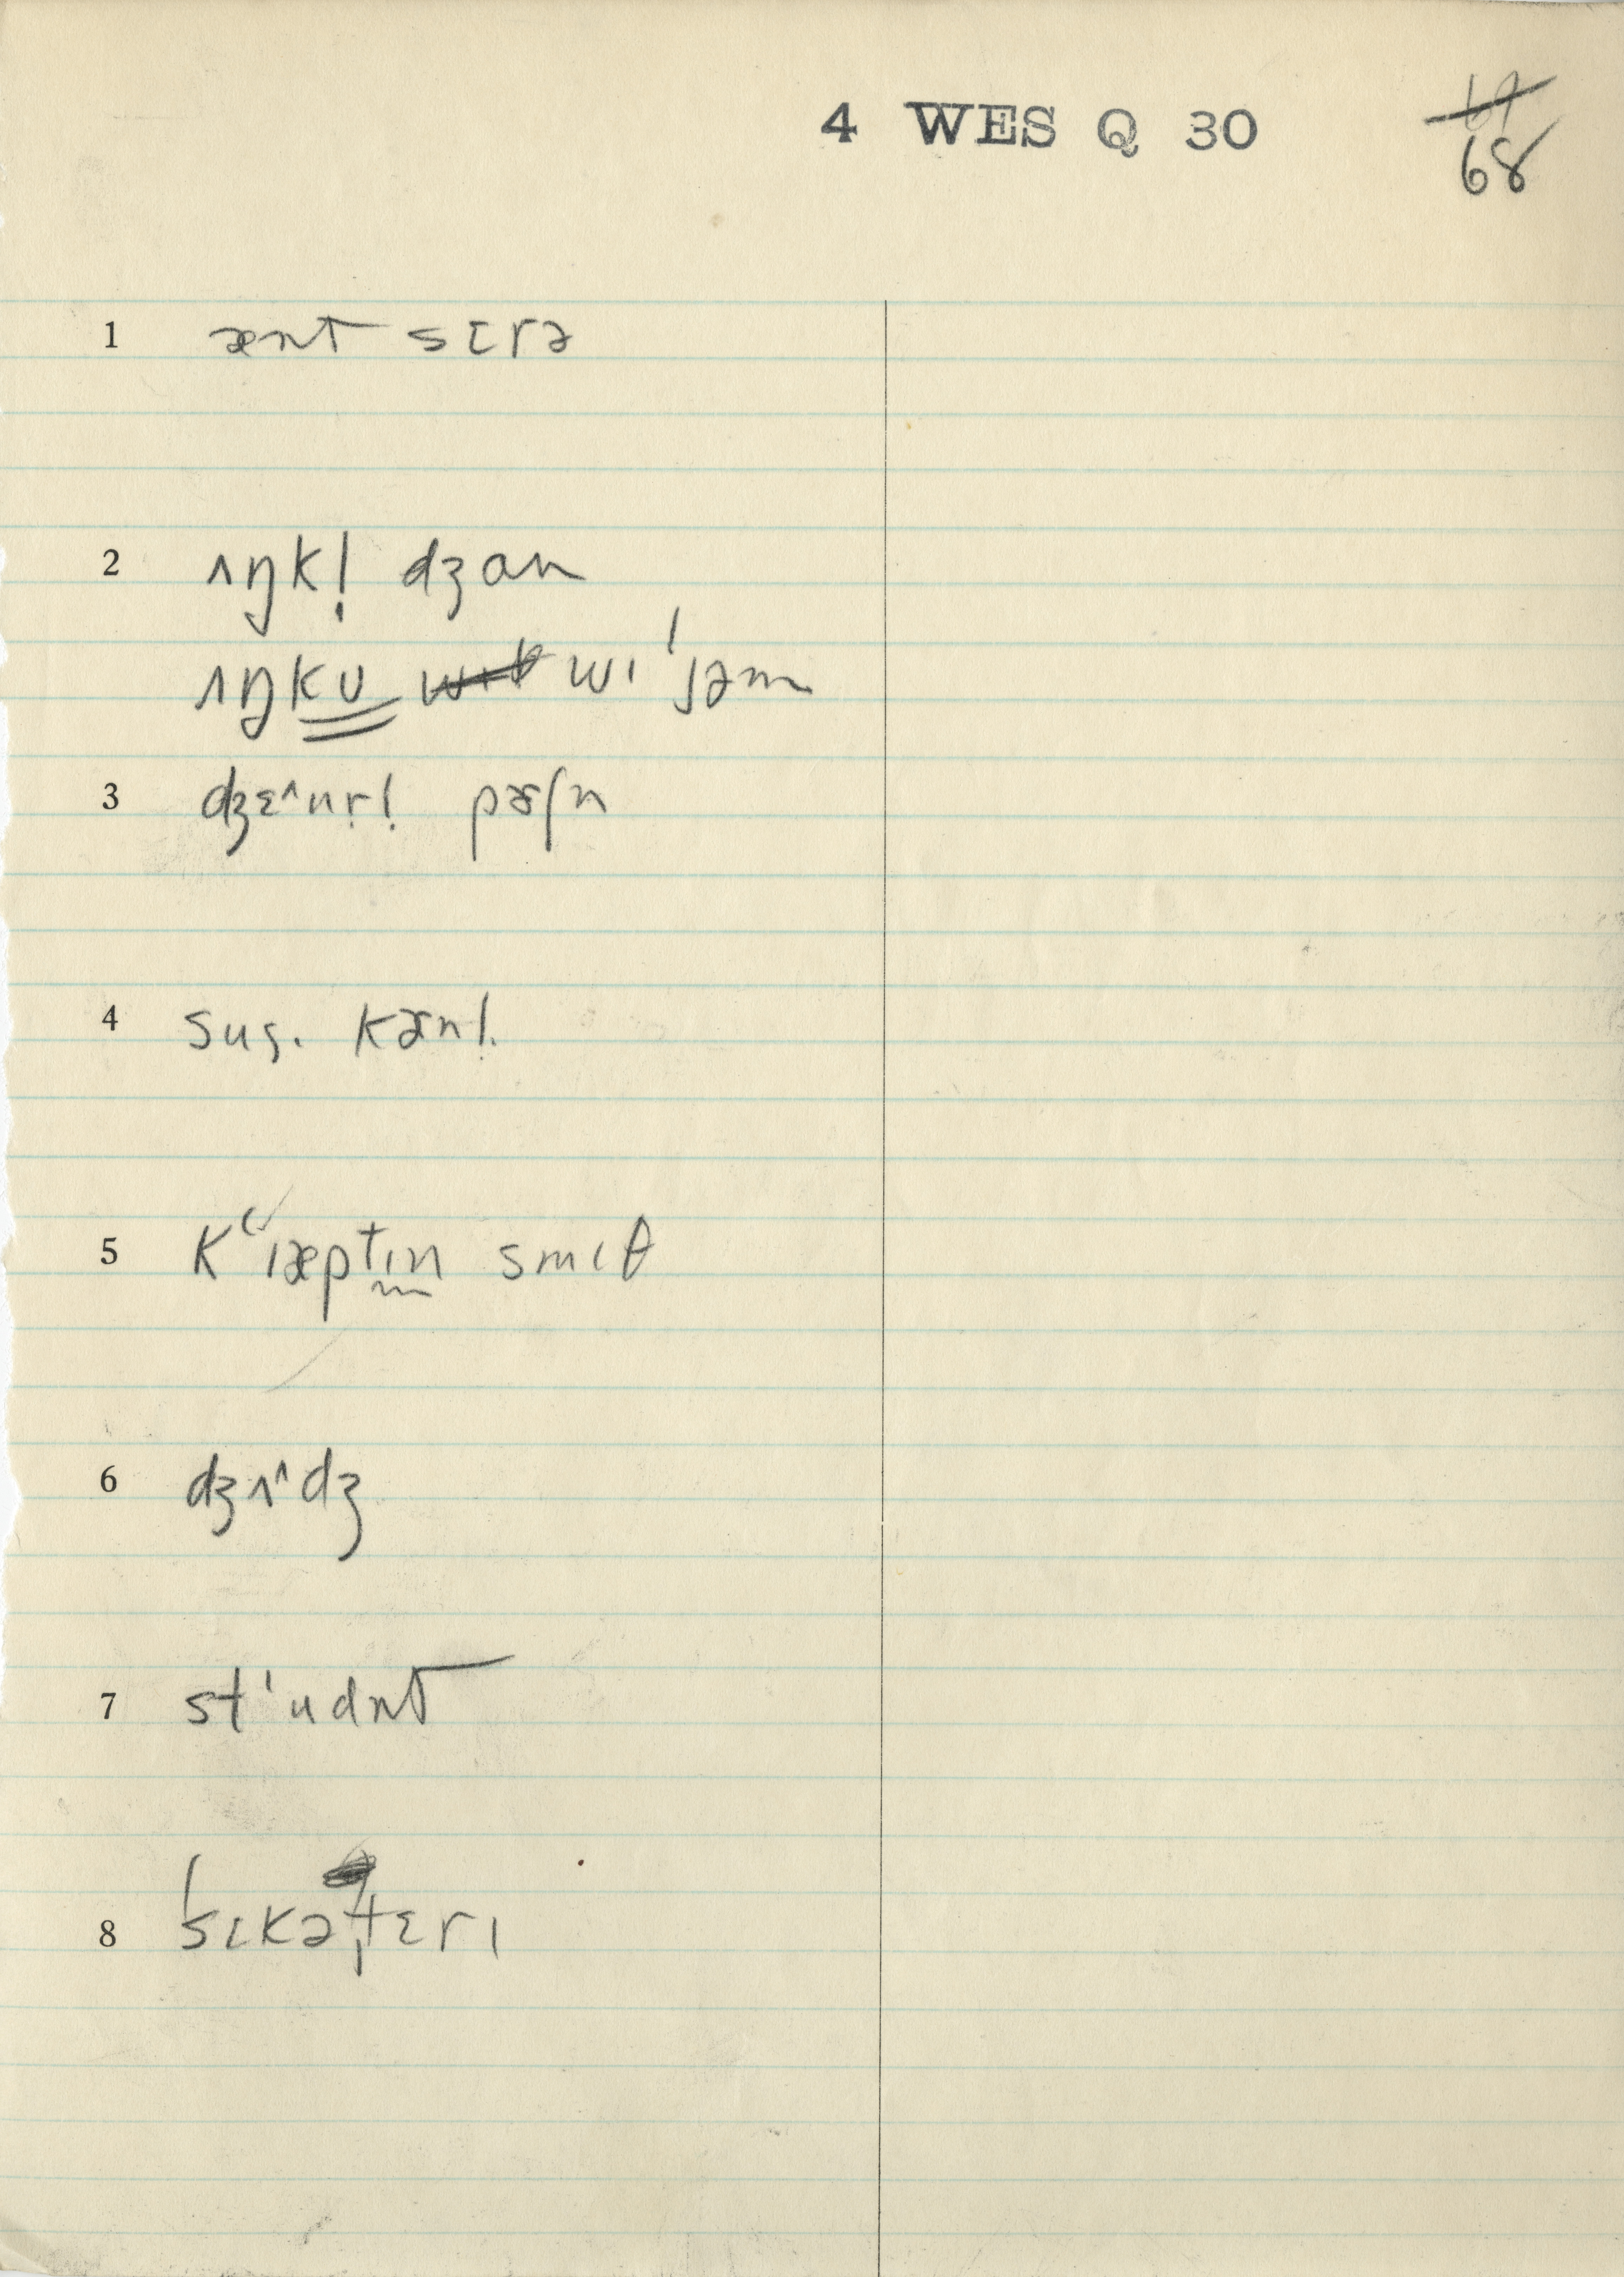 4 WES Q 30
69
68
1 ænt sɛrə
2 ʌŋkl̩ dʒɑn
ʌŋkʊ wɪˈjəm
3 dʒɛ^nr̩l̩ pɚʃn
4 sụ. kɚnl̩
5 Kʻɪæptɪn smɪθ
6 dʒʌ^dʒ
7 stˈudnt
8 ˈsɛkəˌtɛrɪ